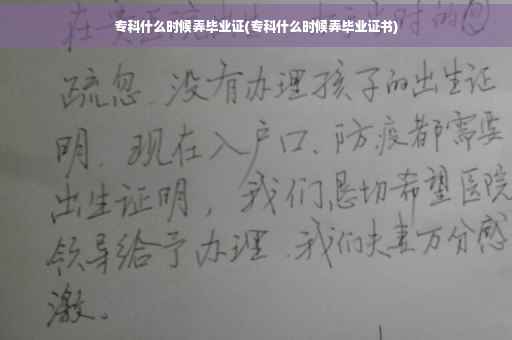 专科什么时候弄毕业证(专科什么时候弄毕业证书)
疏忽、没有办理孩子的出生证
明、现在入户口、防疫都需要
出生证明，我们恳切希望医院
领导给予办理、我们夫妻万分感
激。